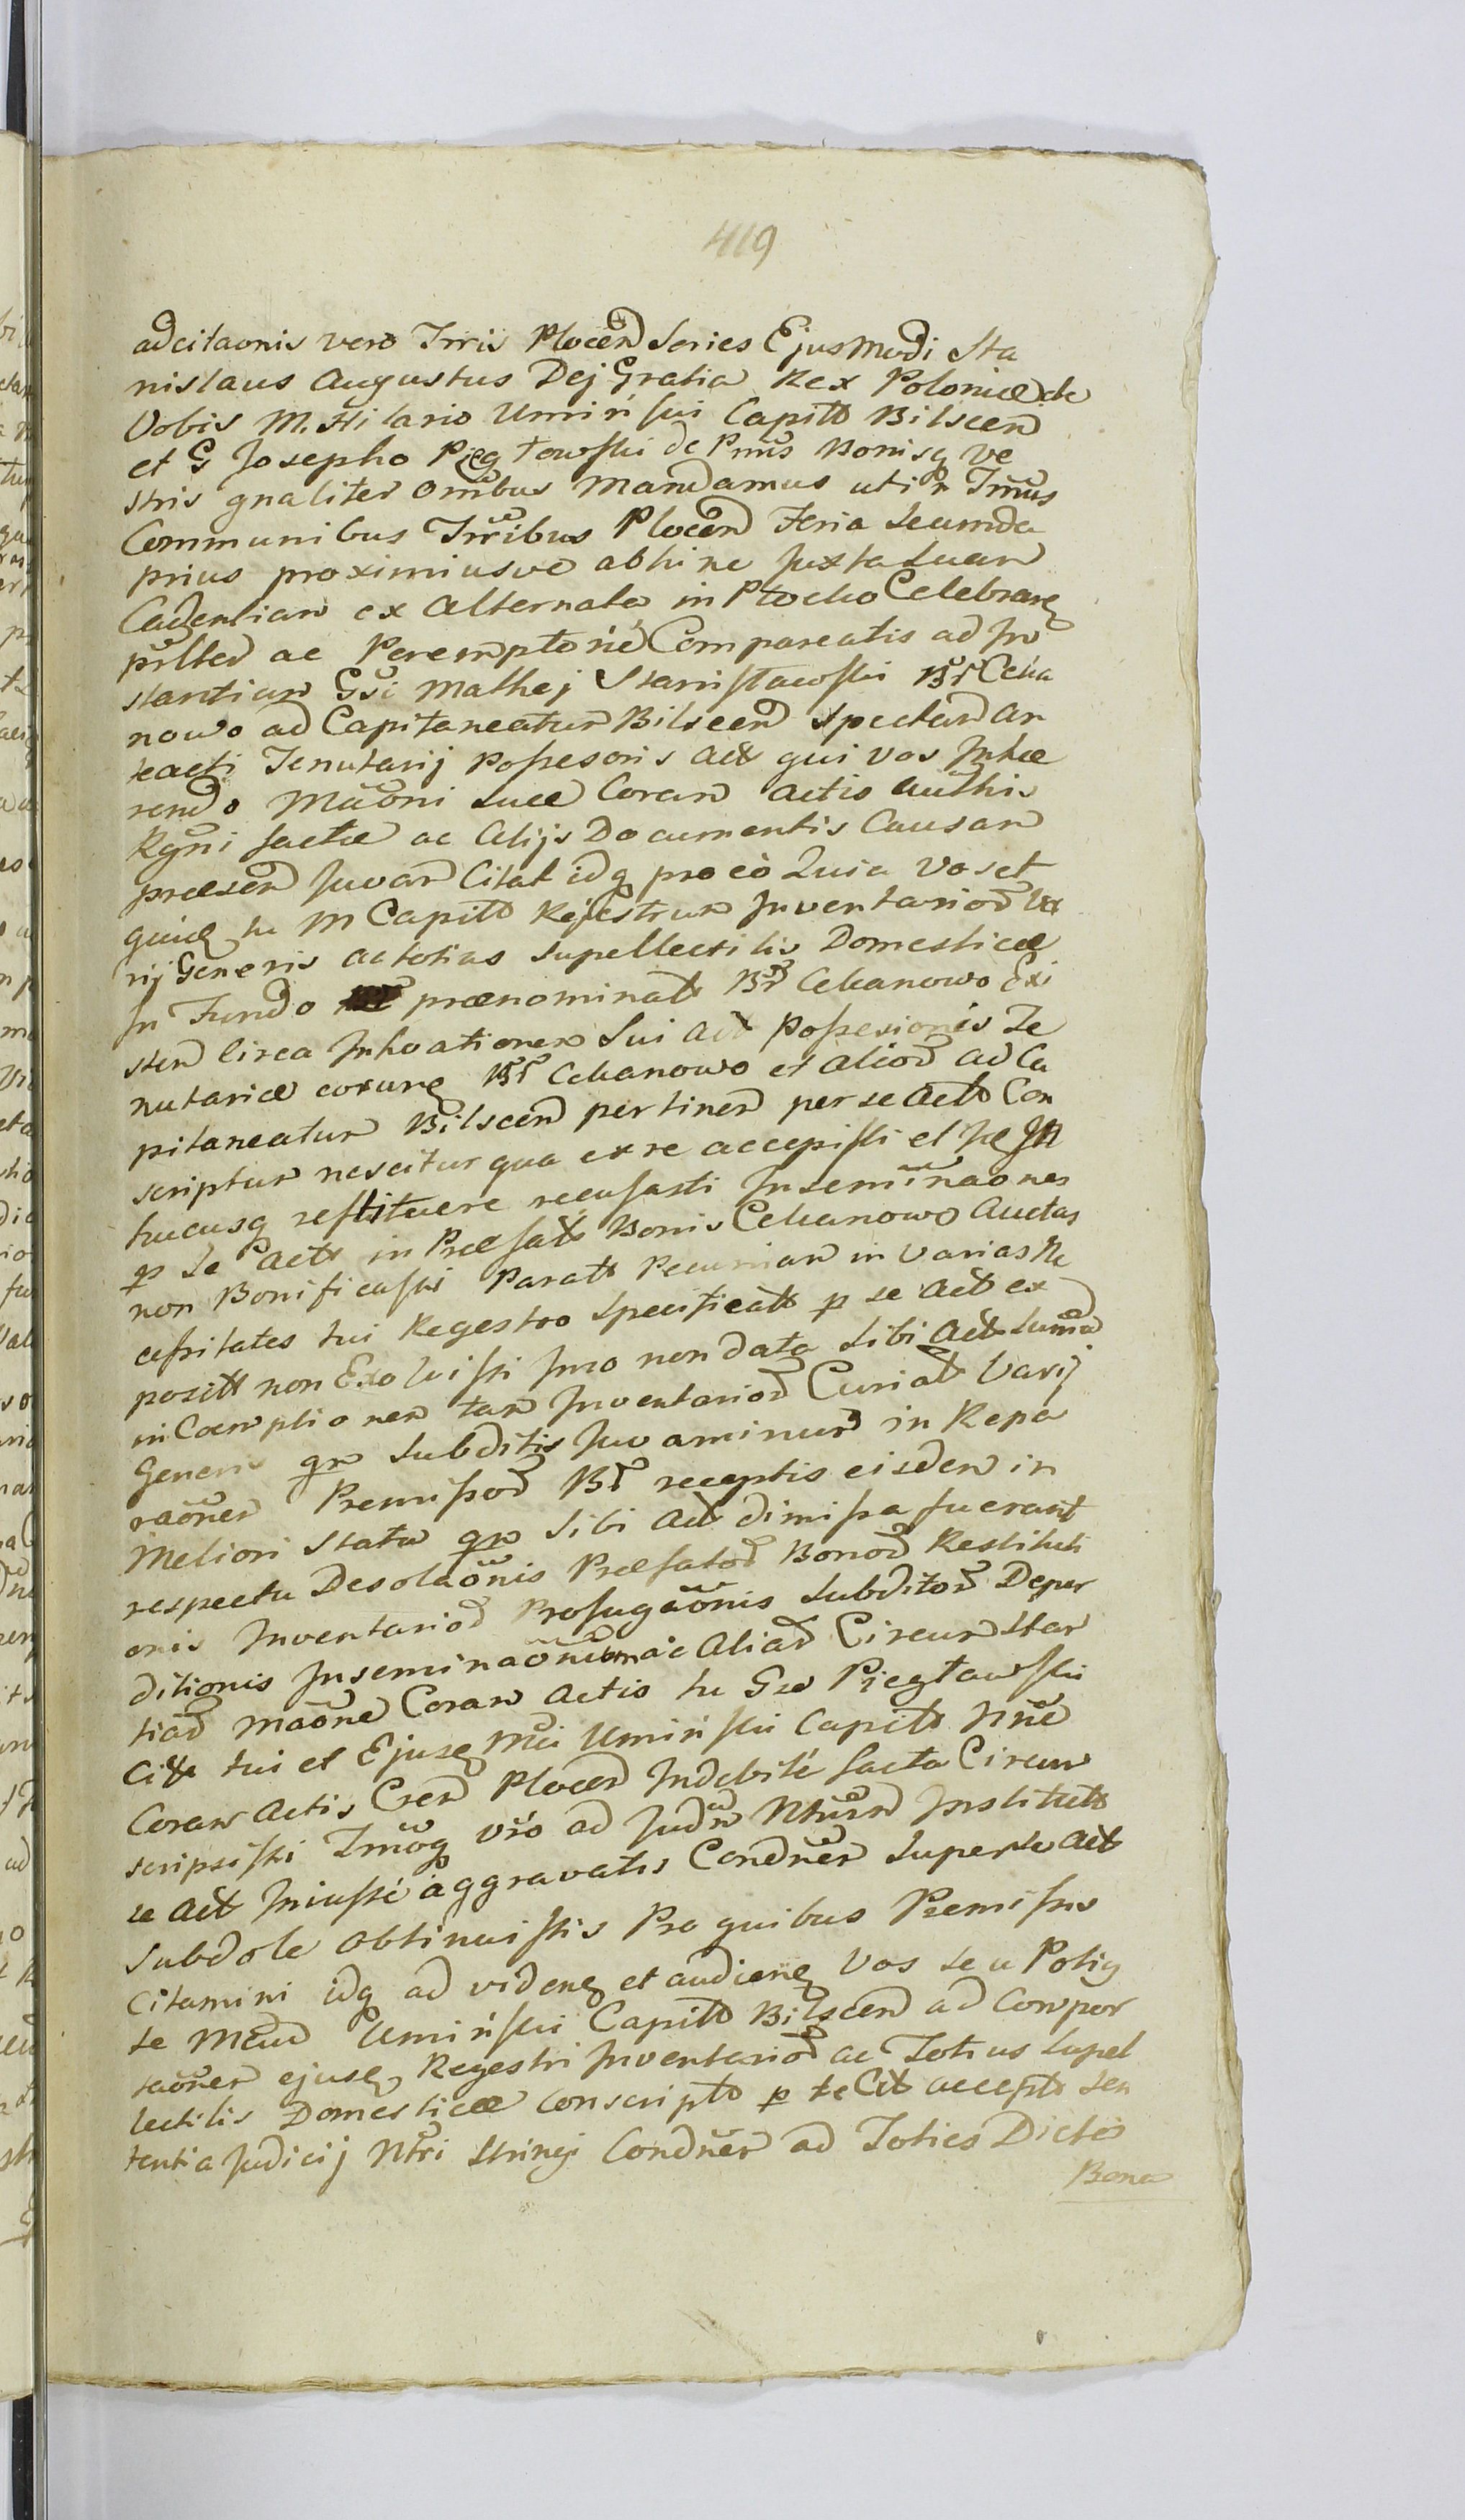 419
adcitaonis vero Trris Plocen Series Ejusmodi Sta
nislaus Augustus Dej Gratia Rex Poloniæ etc
Vobis M. Hilario Umiński Capitt Bilscen
et G Josepho Pięgłowski de Pmis Bonisq ve
stris gnaliter omibus Mandamus uti in Tmis
Communibus Trribus Plocen Feria Secunda
prius proximiusve abhinc Juxta Suam
Cadentiam ex Alternata in Płocko Celebran
prlter ac Peremptorie Compareatis ad In
stantiam Gsi Mathej Stanisławski Br Ceka
nowo ad Capitaneatum Bilscen Spectan An
teacti Tenutarij Possesoris Act qui vos Inhæ
rendo Maoni Suæ Coram Actis Authis
Rgni factæ ac Alijs Documentis Causam
præsen Juvan Citat idq pro eo Quia Vos et
quid tu M Capitt Regestrum Inventarior Va
rij Generis ac totius Supellectilis Domesticæ
In Fundo prænominatt Br Cekanowo Exi
sten circa Inhoationem Sui Act Possesionis Te
nutariæ eorun Br Cekanowo et alior ad Ca
pitaneatum Bilscen pertinen per se Actt Con
scriptum nescitur qua ex re accepisti et
hucusq restituere recusasti Inseminaones
p se Actt in Præfatt Bonis Cekanowo Auctas
non Bonificasti Paratt Pecuniam in Varias Ne
cessitates tui Regestro Specificatt p se Act ex
positt non Exolvisti Imo non data Sibi Act Suma
in Coemptionem tam Inventarior Curiat Varij
Generis qm Subditis Juvaminum in Repa
raonem Premissor Br receptis eisdem in
Meliori Statu qm Sibi Act dimissa fuerant
respectu Desolaonis Præfator Bonor Restituti
onis Inventarior Profugaonis Subditor Deper
ditionis Inseminaonum ac Aliar Circumstan
tiar Maone Coram Actis tu Gse Pięgłowski
Citte tui et Ejusd Mci Umiński Capitt Nne
Coram Actis Cren Plocen Indebite facta Circum
scripsisti Imoq vro ad Judm Ntrum Institutt
se Act Iniuste aggravatis Condner Super se Act
Subdole obtinuistis Pro quibus Premissis
Citamini idq ad viden et audien Vos seu Potig
te Mcum Umiński Capitt Bilscen ad Compor
taonem ejusd Regestri Inventarior ac Totius Supel
lectilis Domesticæ conscriptt p te Citt acceptt Sen
tentia Judicij Ntri Stringi Condner ad Toties Dicto
Bona